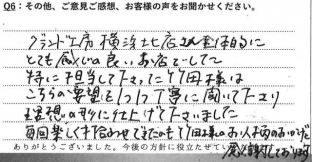 Q6：その他、ご意見ご感想、お客様の声をお聞かせください。
グランド工房 横浜北店さん 全体的に
とても感じの良いお店でした
特に担当して下さった竹田様は
こちらの要望を1つ1つ丁寧に聞いて下さり
理想の形に仕上げて下さいました
毎回楽しく打合わせできたのも竹田様のお人柄のおかげだと
ありがとうございました。今後の方針に役立たせてい
感謝しております